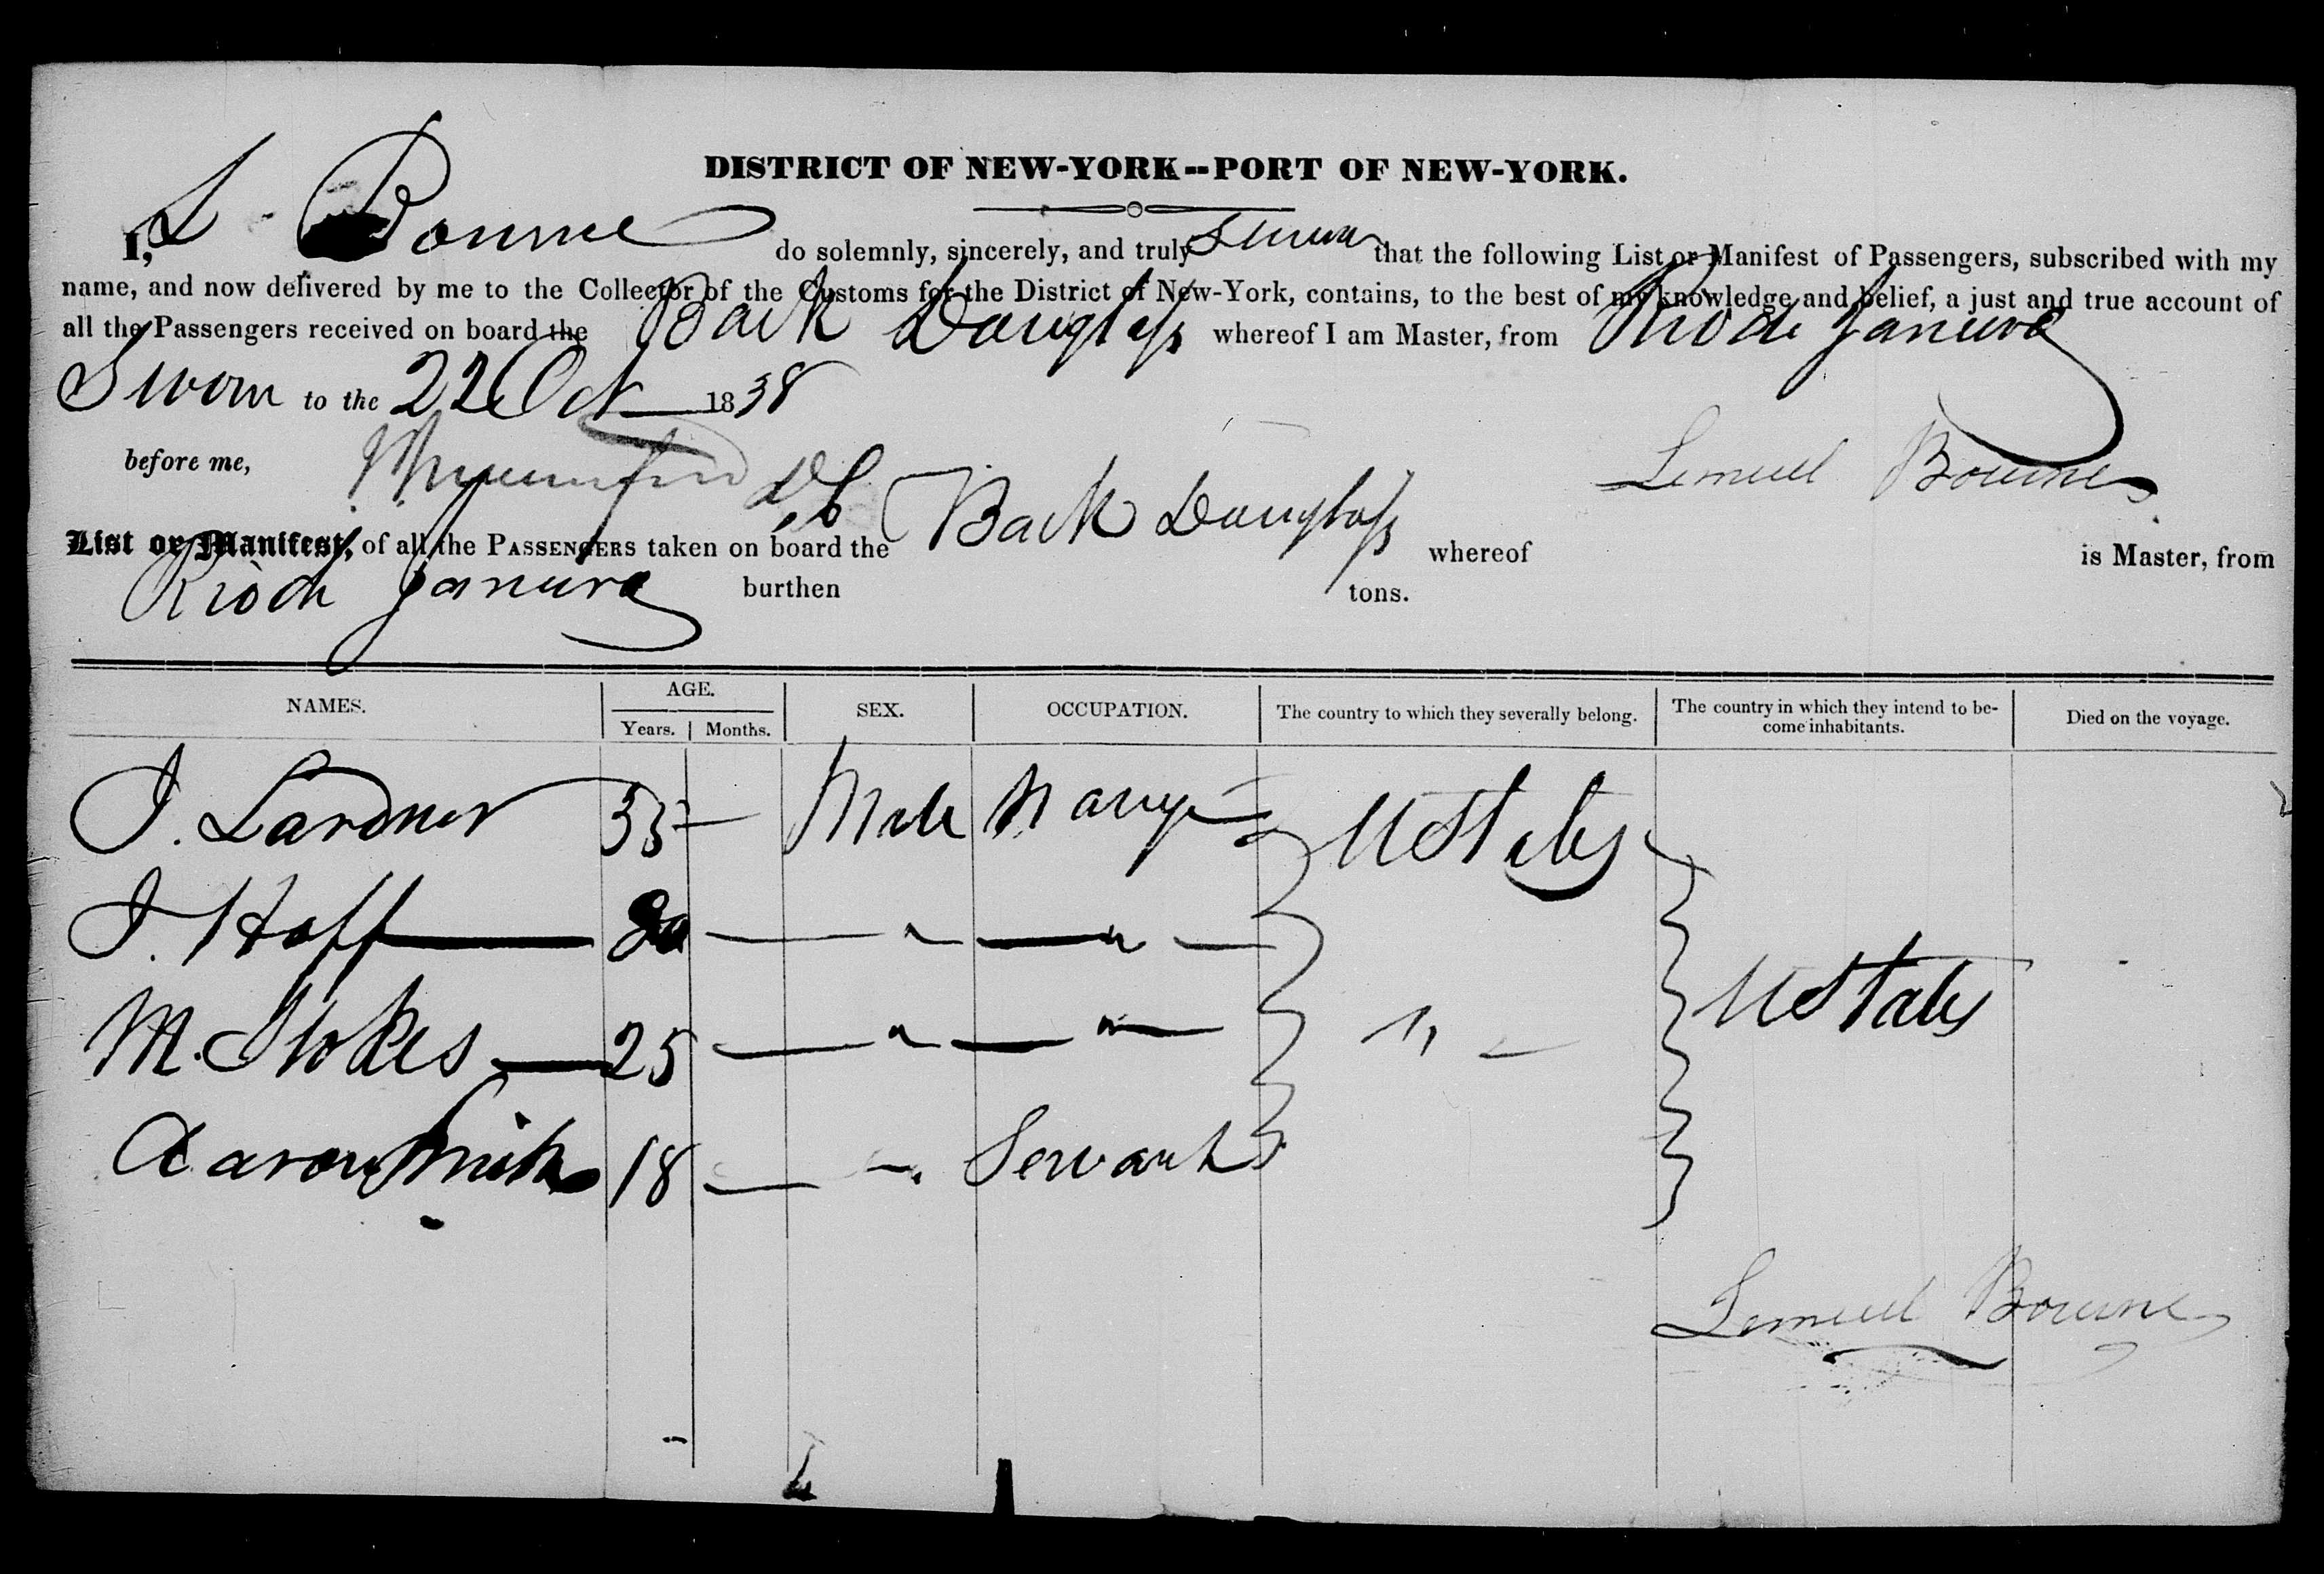 DISTRICT OF NEW-YORK--PORT OF NEW-YORK.
I, L Bourne do solemnly, sincerely, and truly swear that the following List or Manifest of Passengers, subscribed with my
name, and now delivered by me to the Collector of the Customs for the District of New-York, contains, to the best of my knowledge and belief, a just and true account of
all the Passengers received on board the Bark Douglass whereof I am Master, from Rio de Janeiro
Sworn to the 22 Oct 1838
before me, DC Lemuel Bourne
List or Manifest, of all the PASSENGERS taken on board the Bark Douglass whereof is Master, from
Rio de Janeiro burthen tons.
NAMES. AGE. SEX. OCCUPATION. The country to which they severally belong. The country in which they intend to be- Died on the voyage.
Years. Months. come inhabitants.
J. Lardner 35 — Male UStates
J. Hoff — — " — " —
M. Stokes — 25 — " — " — " — UStates
Aaron Smith 18 — " Servant
Lemuel Bourne